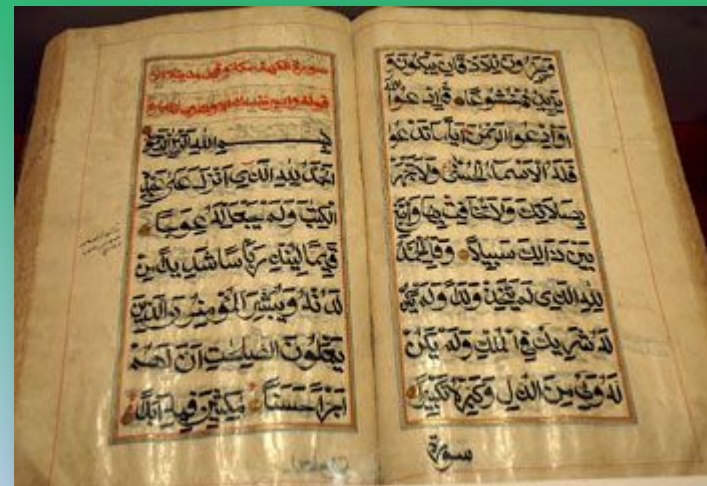 يخرون للاذقان يبكون و
يزيدهم خشوعا قل ادعوا الله
اوادعوا الرحمن ايا ما تدعوا
فله الاسماء الحسنى ولا تجهر
بصلاتك ولا تخافت بها وابتغ
بين ذالك سبيلا وقل الحمد
لله الذي لم يتخذ ولدا ولم يكن
له شريك في الملك ولم يكن
له ولي من الذل وكبره تكبيرا
سورة
سورة الكهف مكية وقيل
قوله واصبر نفسك
بسم الله الرحمن الرحيم
الحمد لله الذي انزل على عبده
الكتب ولم يجعل له عوجا
قيما لينذر باسا شديدا من
لدنه ويبشر المؤمنين الذين
يعملون الصلحت ان لهم
اجرا حسنا مكثين فيه ابدا